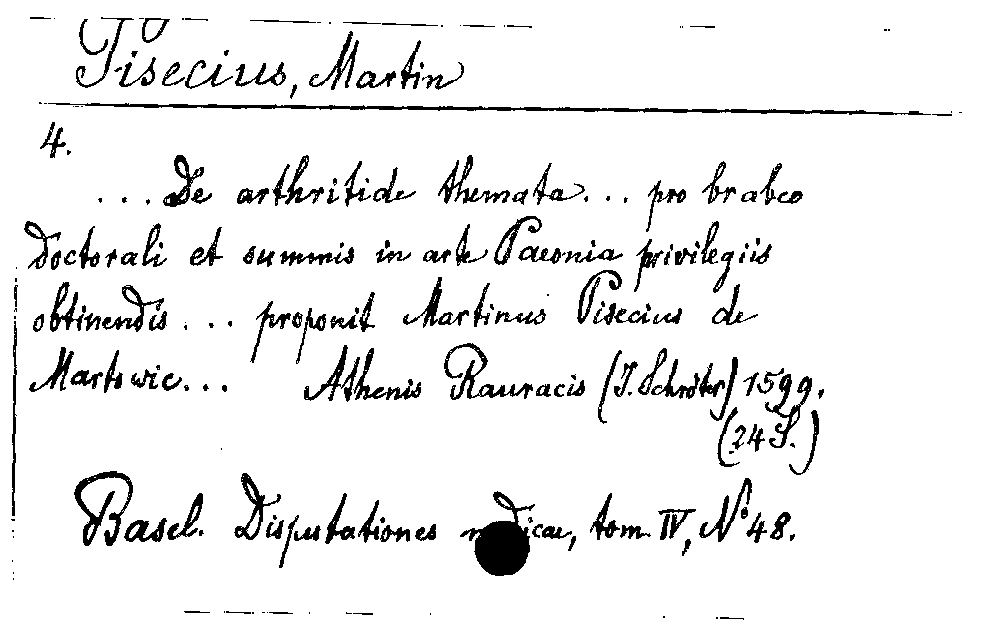 Pisecius, Martin
4.
... De arthritide themata... pro brabeo
doctorali et summis in arte Paeonia privilegiis
obtinendis ... proponit Martinus Pisecius de
Martowic... Athenis Rauracis (J. Schröter) 1599.
(24 S.)
Basel. Disputationes medicae, tom. IV, No 48.